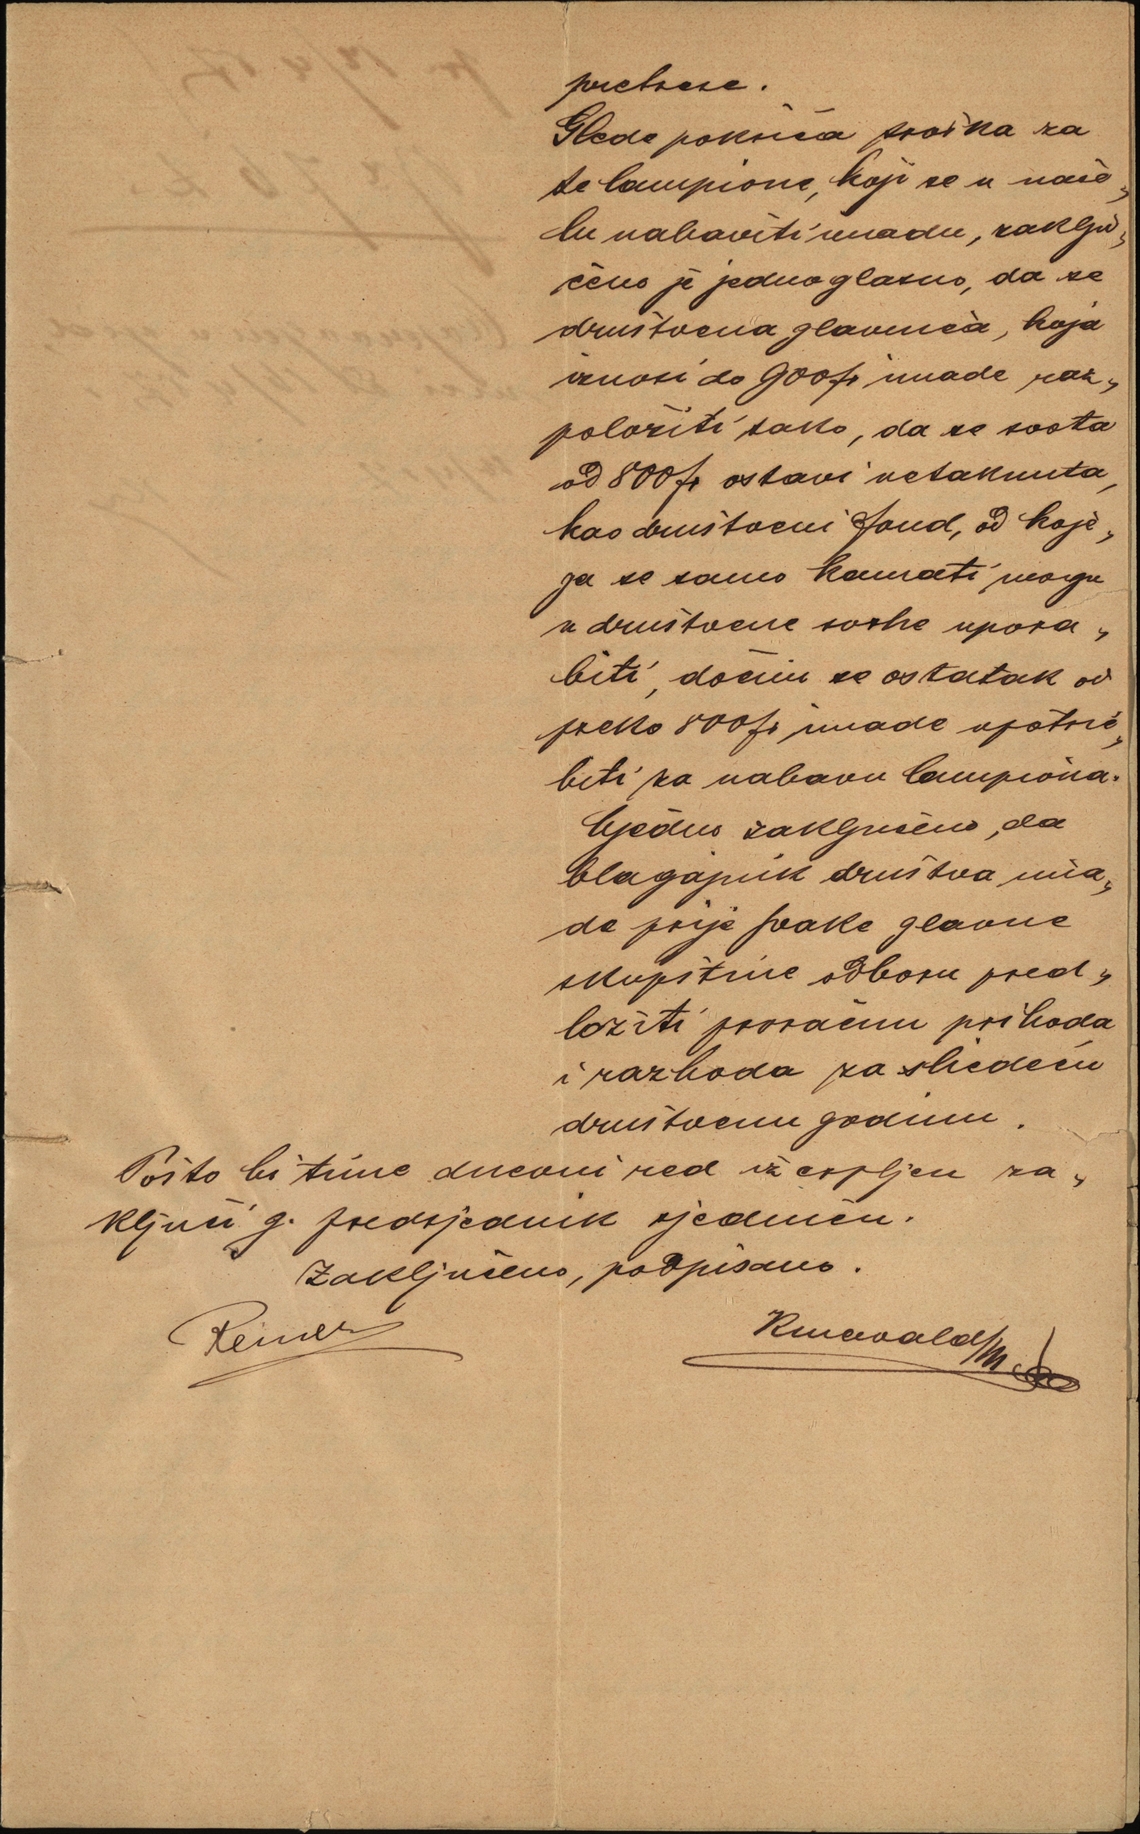 pretrese.
Glede pokrića troška za
te lampione, koji se u nače„
lu nabaviti imadu, zaklju„
čeno je jednoglasno, da se
društvena glavnica, koja
iznosi do 900 fr imade raz„
položiti tako, da se svota
od 800 fr ostavi netaknuta,
kao društveni fond, od koje„
ga se samo kamati mogu
u društvene svrhe upora„
biti, dočim se ostatak od
preko 800 fr imade upotrie„
biti za nabavu lampiona.
Ujedno zaključeno, da
blagajnik društva ima„
de prije svake glavne
skupštine odboru pred„
ložiti proračun prihoda
i razhoda za sliedeću
društvenu godinu.
Pošto bi time dnevni red izcrpljen za„
ključi g. predsjednik sjednicu.
Zaključeno, podpisano.
Reiner